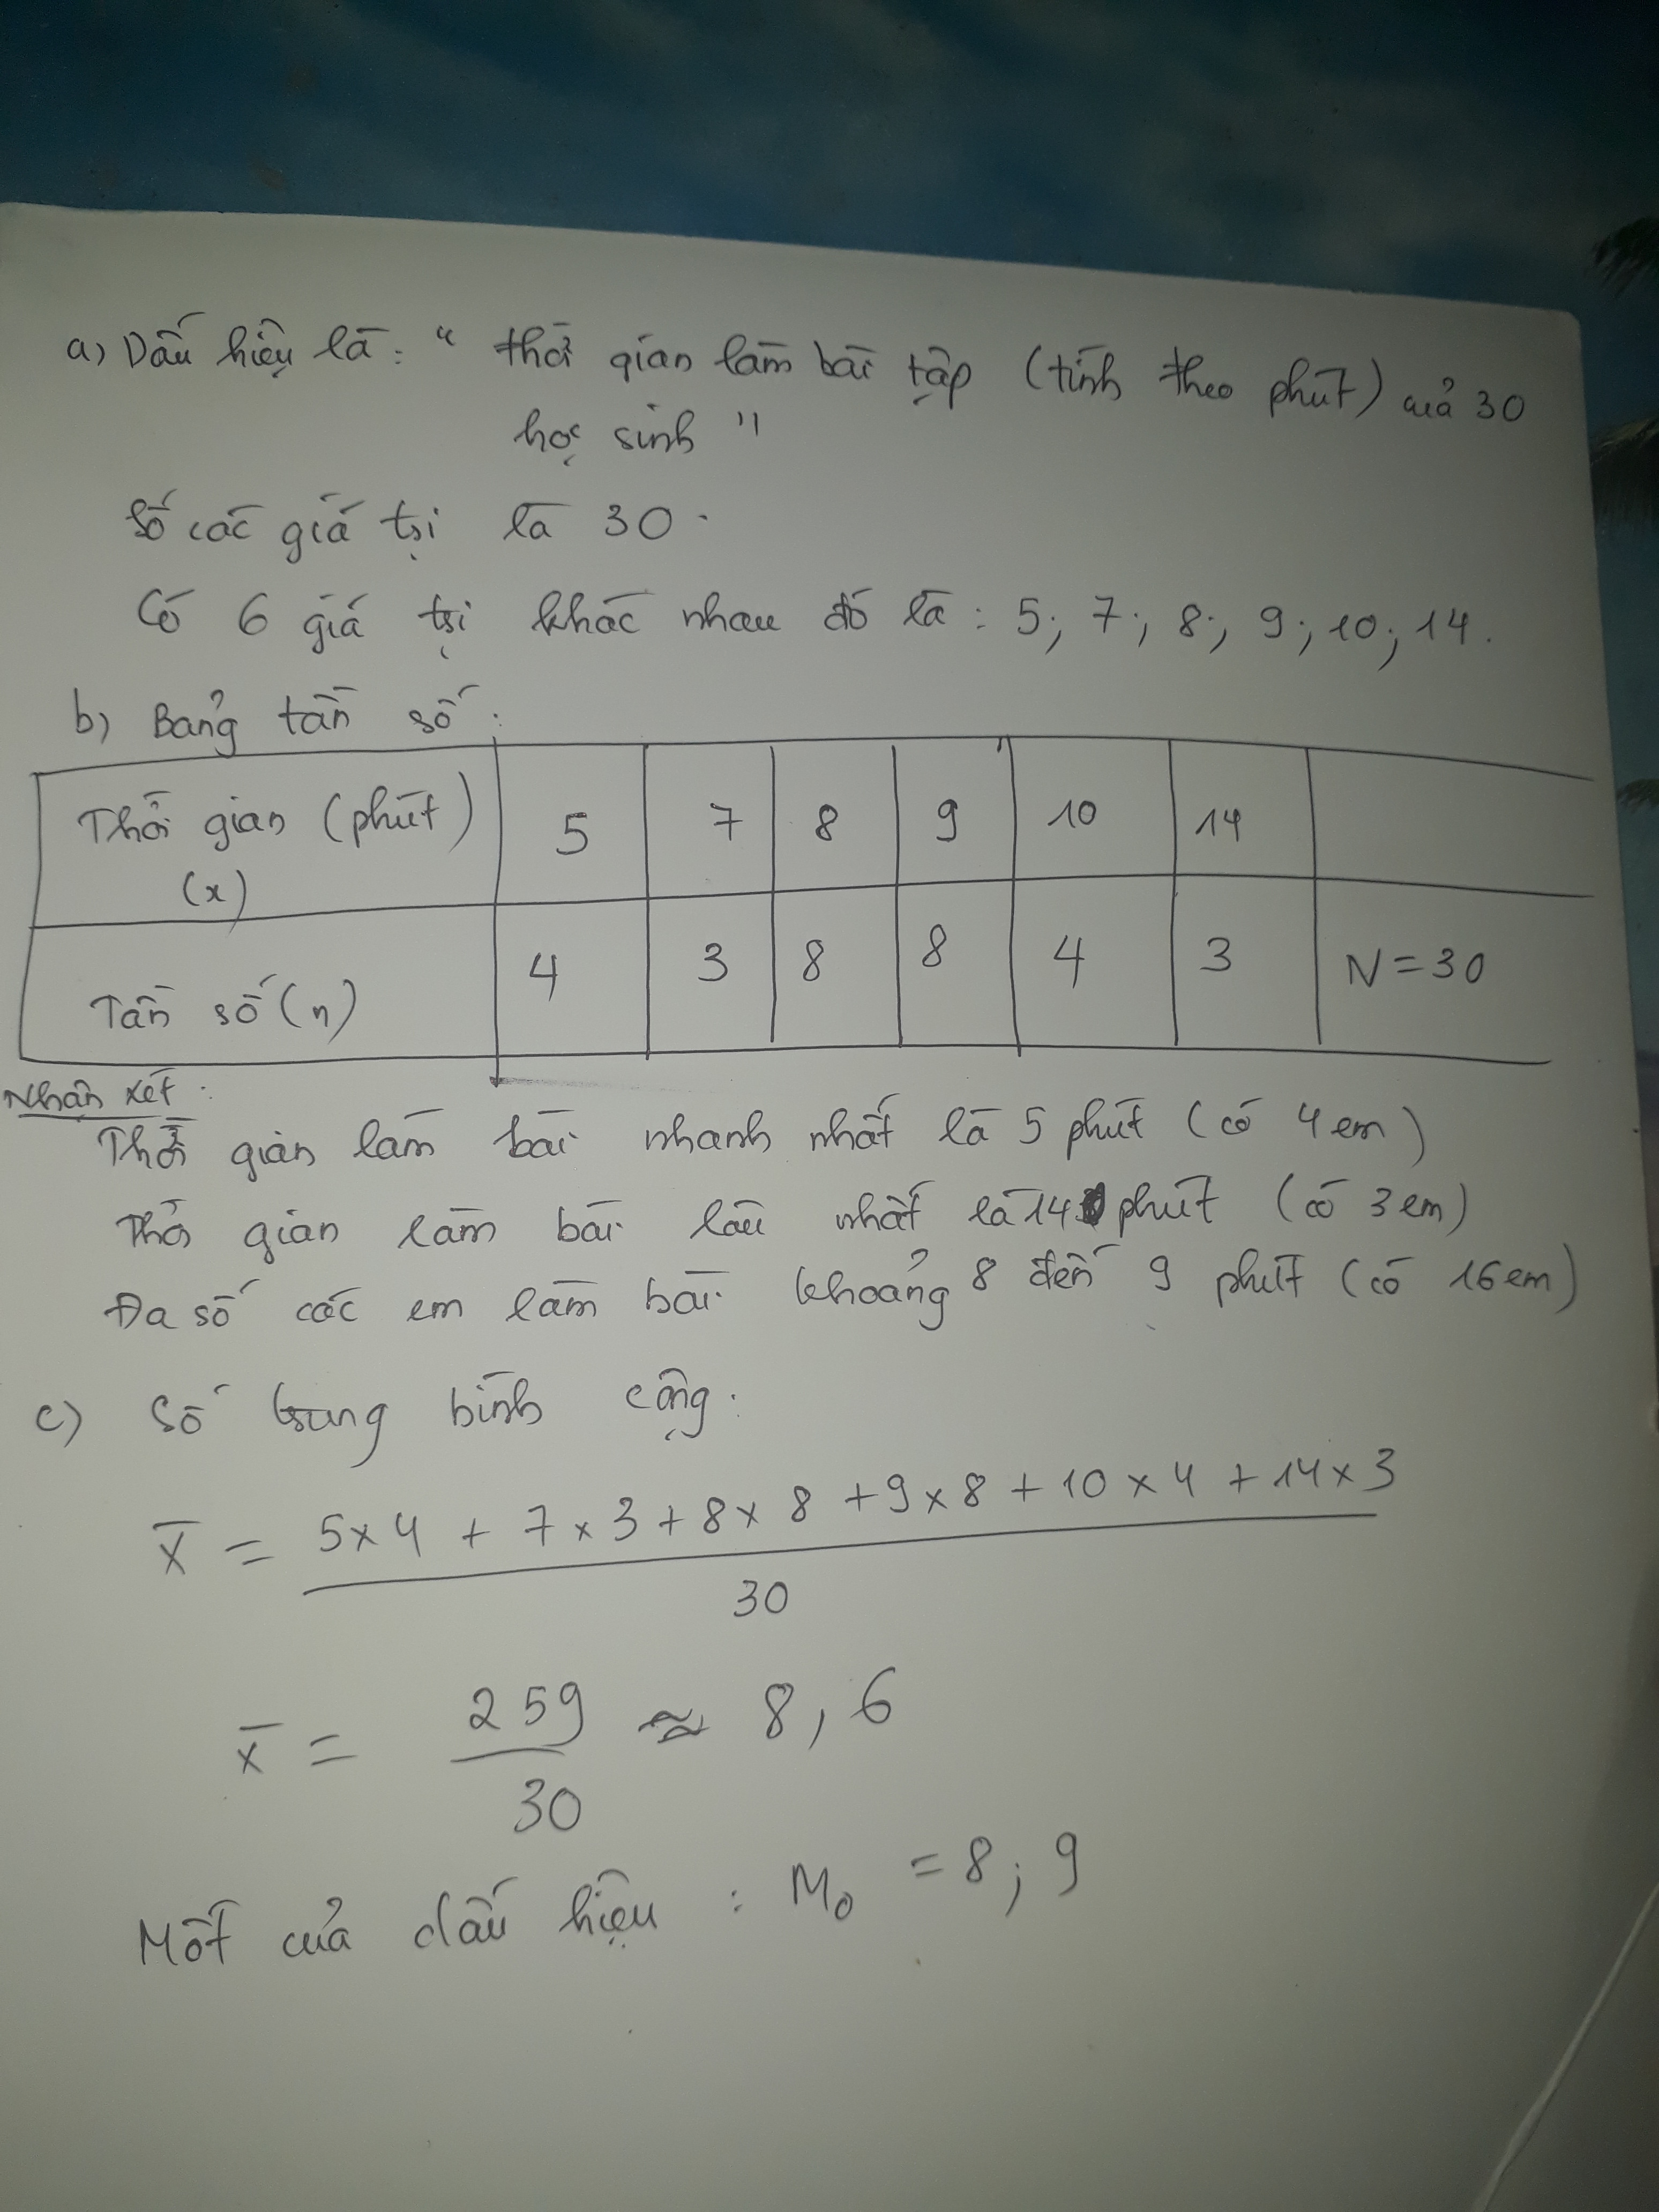 a) Dấu hiệu là: " thời gian làm bài tập (tính theo phút) của 30
học sinh "
Số các giá trị là 30.
Có 6 giá trị khác nhau đó là: 5; 7; 8; 9; 10; 14.
b) Bảng tần số:
Thời gian (phút) (x) 5 7 8 9 10 14
Tần số (n) 4 3 8 8 4 3 N=30
Nhận xét:
Thời gian làm bài nhanh nhất là 5 phút (có 4 em)
Thời gian làm bài lâu nhất là 14 phút (có 3 em)
Đa số các em làm bài khoảng 8 đến 9 phút (có 16 em)
c) Số trung bình cộng:
X̄ = 5×4 + 7×3 + 8×8 + 9×8 + 10×4 + 14×3
30
X̄ = 259 ≈ 8,6
30
Mốt của dấu hiệu : M₀ = 8; 9